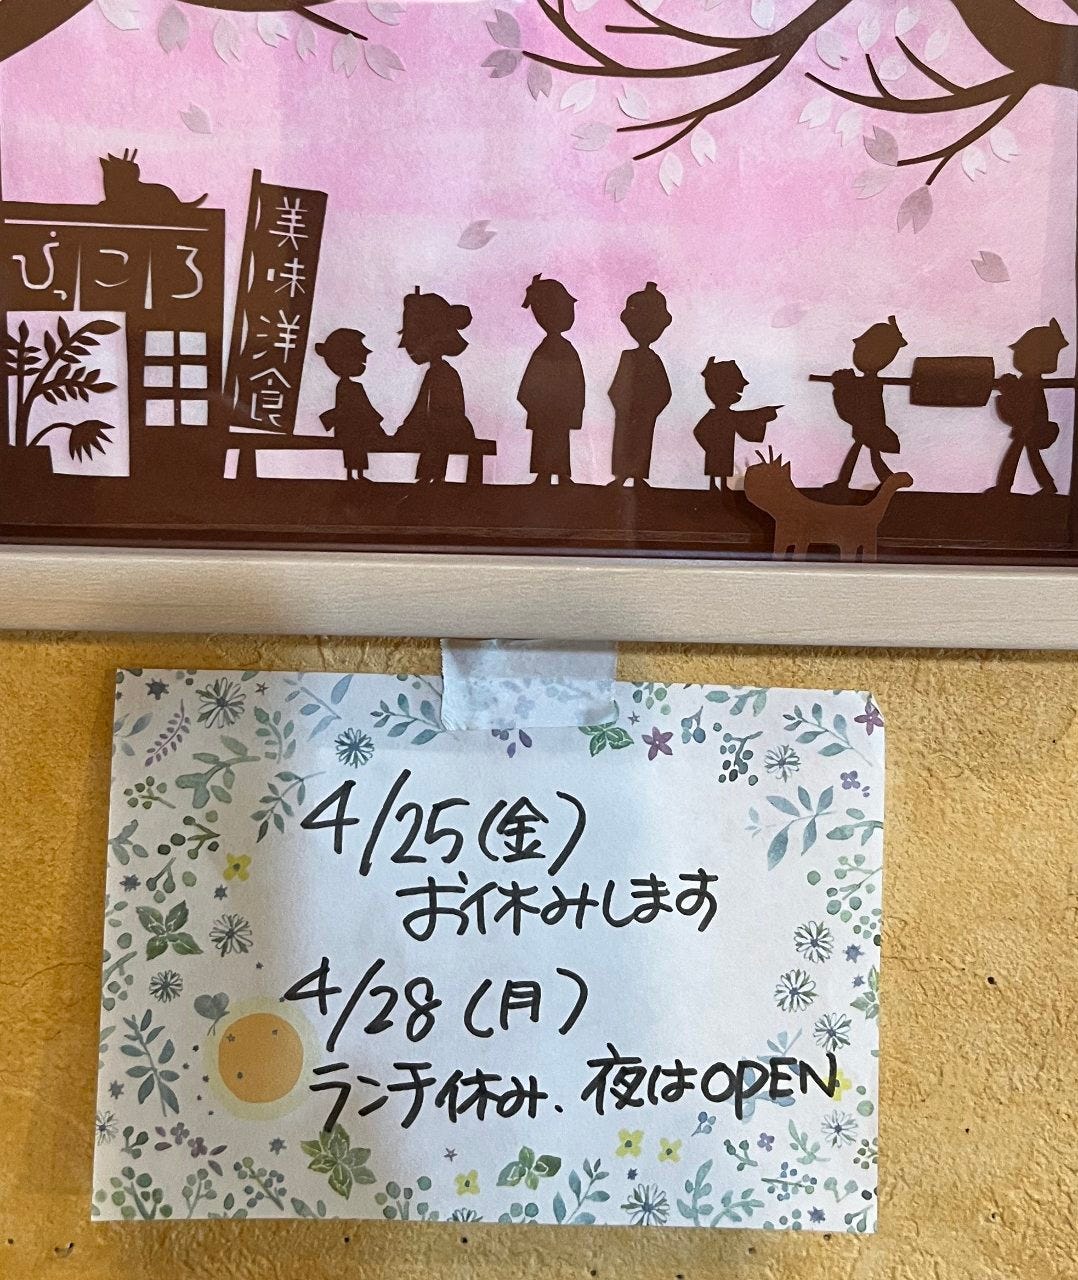 ぴっころ
美味洋食
4/25(金)
お休みします
4/28(月)
ランチ休み、夜はOPEN